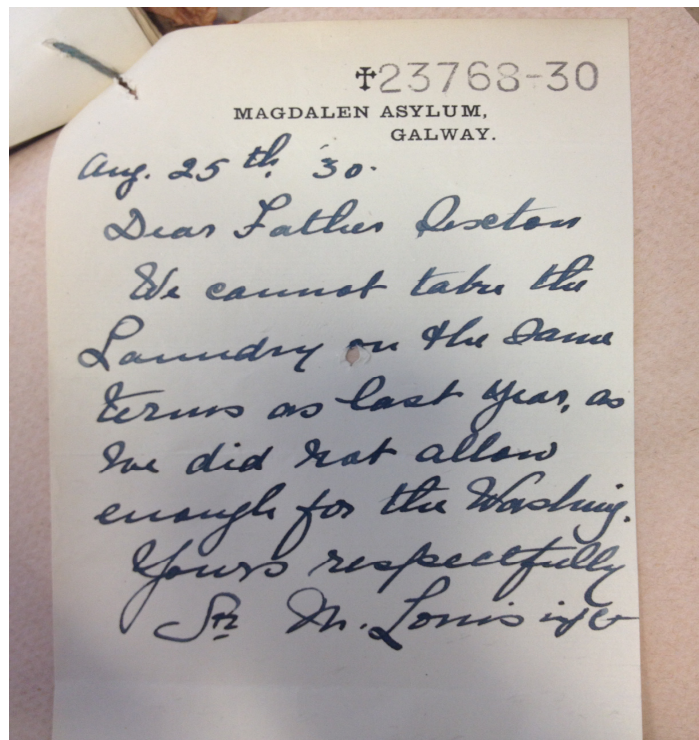 ✝23768-30
MAGDALEN ASYLUM,
GALWAY.
Aug. 25th '30.
Dear Father Sexton
We cannot take the
Laundry on the same
terms as last year, as
we did not allow
enough for the Washing.
Yours respectfully
Sr. M. Louis